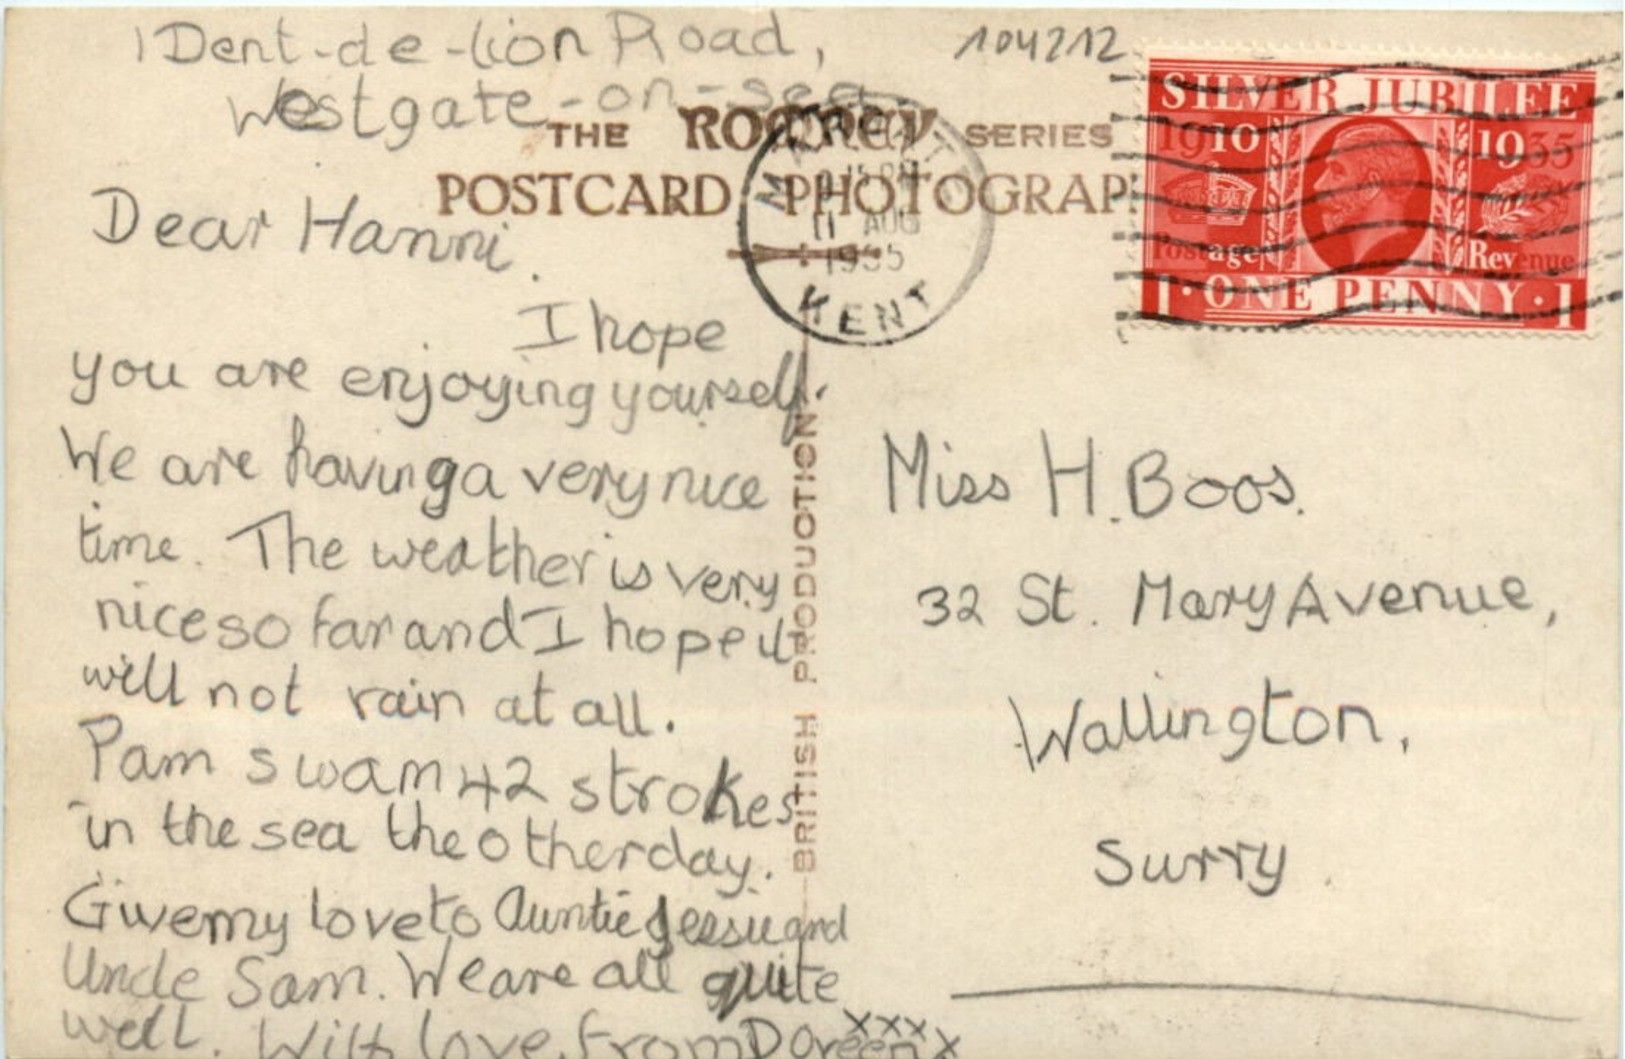 1 Dent-de-lion Road,
Westgate-on-sea
104212
THE ROMNEY SERIES
POSTCARD PHOTOGRAP
SILVER JUBILEE
1910 1935
Postage Revenue
1·ONE PENNY·1
11 AUG
1935
KENT
Dear Hanni.
I hope
you are enjoying yourself.
We are having a very nice
time. The weather is very
nice so far and I hope it
will not rain at all.
Pam swam 42 strokes
in the sea the other day.
Give my love to Auntie Jessie and
Uncle Sam. We are all quite
well. With love from Doreen
xxxx
x
BRITISH PRODUCTION
Miss H. Boos.
32 St. Mary Avenue,
Wallington,
Surry